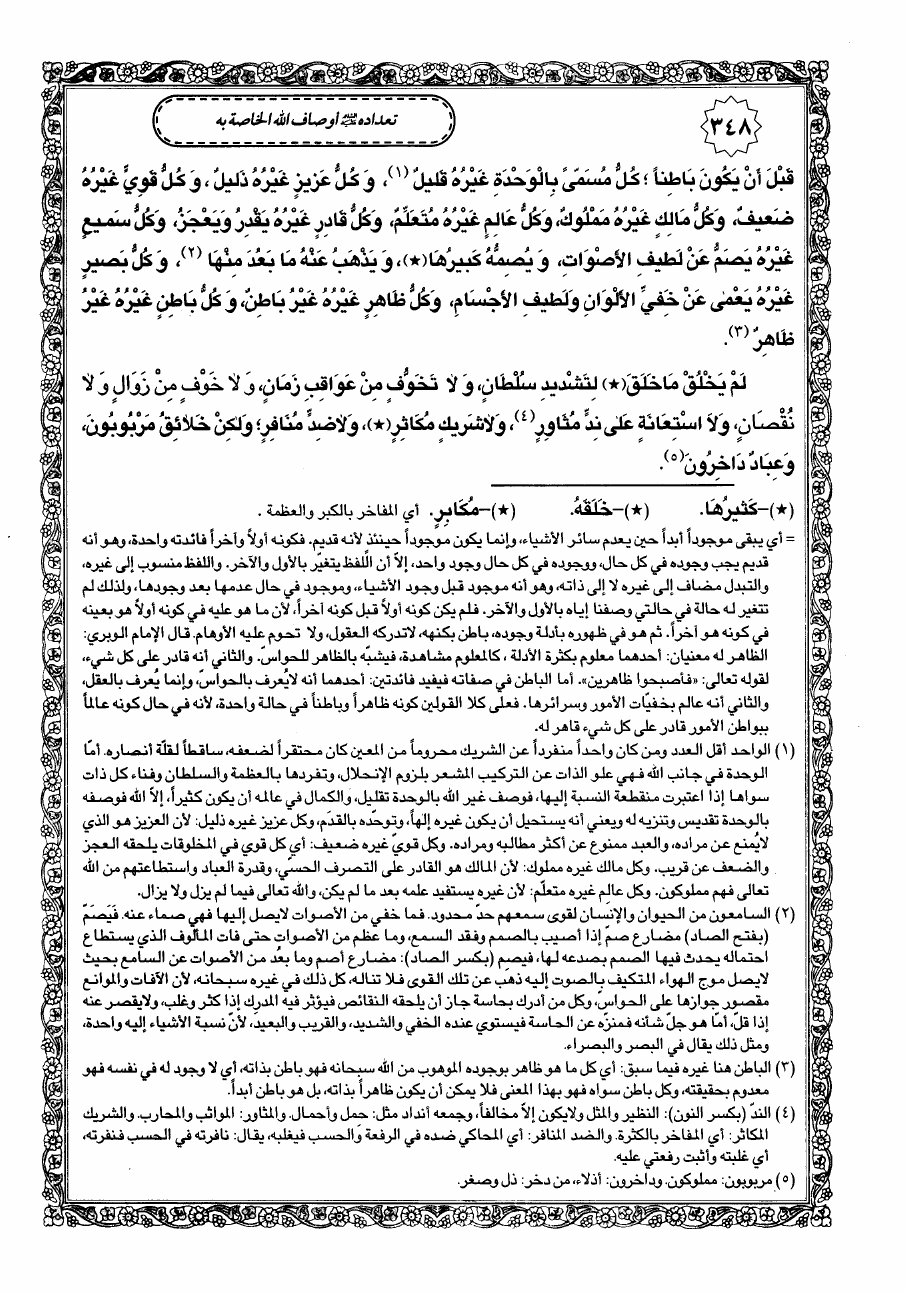 ٣٤٨
تعداده ﷺ أوصاف الله الخاصة به
قَبْلَ أَنْ يَكُونَ بَاطِناً ؛ كُلُّ مُسَمّىً بِالْوَحْدَةِ غَيْرُهُ قَلِيلٌ (١)، وَ كُلُّ عَزِيزٍ غَيْرُهُ ذَلِيلٌ، وَ كُلُّ قَوِيٍّ غَيْرُهُ
ضَعِيفٌ، وَكُلُّ مَالِكٍ غَيْرُهُ مَمْلُوكٌ، وَكُلُّ عَالِمٍ غَيْرُهُ مُتَعَلِّمٌ، وَكُلُّ قَادِرٍ غَيْرُهُ يَقْدِرُ وَيَعْجَزُ، وَكُلُّ سَمِيعٍ
غَيْرُهُ يَصَمُّ عَنْ لَطِيفِ الأَصْوَاتِ، وَ يُصِمُّهُ كَبِيرُهَا(★)، وَ يَذْهَبُ عَنْهُ مَا بَعُدَ مِنْهَا (٢)، وَ كُلُّ بَصِيرٍ
غَيْرُهُ يَعْمَى عَنْ خَفِيِّ الأَلْوَانِ وَلَطِيفِ الأَجْسَامِ، وَكُلُّ ظَاهِرٍ غَيْرُهُ غَيْرُ بَاطِنٌ، وَ كُلُّ بَاطِنٍ غَيْرُهُ غَيْرُ
ظَاهِرٌ (٣).
لَمْ يَخْلُقْ مَا خَلَقَ(★) لِتَشْدِيدِ سُلْطَانٍ، وَ لاَ تَخَوُّفٍ مِنْ عَوَاقِبِ زَمَانٍ، وَ لاَ خَوْفٍ مِنْ زَوَالٍ وَ لاَ
نُقْصَانٍ، وَلاَ اسْتِعَانَةٍ عَلَى نِدٍّ مُثَاوِرٍ (٤)، وَلاَشَرِيكٍ مُكَاثِرٍ(★)، وَلاَضِدٍّ مُنَافِرٍ؛ وَلكِنْ خَلاَئِقُ مَرْبُوبُونَ،
وَعِبَادٌ دَاخِرُونَ(٥).
(★)–كَثِيرُهَا. (★)–خَلَقَهُ. (★)–مُكَابِرٍ. أي المفاخر بالكبر والعظمة .
= أي يبقى موجوداً أبداً حين يعدم سائر الأشياء، وإنما يكون موجوداً حينئذ لأنه قديم. فكونه أولاً وآخراً فائدته واحدة، وهو أنه
قديم يجب وجوده في كل حال، ووجوده في كل حال وجود واحد، إلاّ أن اللّفظ يتغيّر بالأول والآخر. واللفظ منسوب إلى غيره،
والتبدل مضاف إلى غيره لا إلى ذاته، وهو أنه موجود قبل وجود الأشياء، وموجود في حال عدمها بعد وجودها، ولذلك لم
تتغير له حالة في حالتي وصفنا إياه بالأول والآخر. فلم يكن كونه أولاً قبل كونه آخراً، لأن ما هو عليه في كونه أولاً هو بعينه
في كونه هو آخراً. ثم هو في ظهوره بأدلة وجوده، باطن بكنهه، لاتدركه العقول، ولا تحوم عليه الأوهام. قال الإمام الوبري:
الظاهر له معنيان: أحدهما معلوم بكثرة الأدلة ، كالمعلوم مشاهدة، فيشبّه بالظاهر للحواسّ. والثاني أنه قادر على كل شيء،
لقوله تعالى: «فأصبحوا ظاهرين». أما الباطن في صفاته فيفيد فائدتين: أحدهما أنه لايُعرف بالحواسّ، وإنما يُعرف بالعقل،
والثاني أنه عالم بخفيّات الأمور وسرائرها. فعلى كلا القولين كونه ظاهراً وباطناً في حالة واحدة، لأنه في حال كونه عالماً
ببواطن الأمور قادر على كل شيء قاهر له.
(١) الواحد أقل العدد ومن كان واحداً منفرداً عن الشريك محروماً من المعين كان محتقراً لضعفه، ساقطاً لقلّة أنصاره. أمّا
الوحدة في جانب الله فهي علو الذات عن التركيب المشعر بلزوم الإنحلال، وتفردها بالعظمة والسلطان وفناء كل ذات
سواها إذا اعتبرت منقطعة النسبة إليها، فوصف غير الله بالوحدة تقليل، والكمال في عالمه أن يكون كثيراً، إلاّ الله فوصفه
بالوحدة تقديس وتنزيه له ويعني أنه يستحيل أن يكون غيره إلهاً، وتوحّده بالقدَم، وكل عزيز غيره ذليل: لأن العزيز هو الذي
لايُمنع عن مراده، والعبد ممنوع عن أكثر مطالبه ومراده. وكل قويّ غيره ضعيف: أي كل قوي في المخلوقات يلحقه العجز
والضعف عن قريب. وكل مالك غيره مملوك: لأن المالك هو القادر على التصرف الحسّي، وقدرة العباد واستطاعتهم من الله
تعالى فهم مملوكون. وكل عالم غيره متعلّم: لأن غيره يستفيد علمه بعد ما لم يكن، والله تعالى فيما لم يزل ولا يزال.
(٢) السامعون من الحيوان والإنسان لقوى سمعهم حدّ محدود. فما خفي من الأصوات لايصل إليها فهي صماء عنه. فَيَصَمّ
(بفتح الصاد) مضارع صمّ إذا أصيب بالصمم وفقد السمع، وما عظم من الأصوات حتى فات المألوف الذي يستطاع
احتماله يحدث فيها الصمم بصدعه لها، فيصِم (بكسر الصاد): مضارع أصم وما بعُد من الأصوات عن السامع بحيث
لايصل موج الهواء المتكيف بالصوت إليه ذهب عن تلك القوى فلا تناله، كل ذلك في غيره سبحانه، لأن الآفات والموانع
مقصور جوازها على الحواس، وكل من أدرك بحاسة جاز أن يلحقه النقائص فيؤثر فيه المدرك إذا كثر وغلب، ولايقصر عنه
إذا قلّ، أمّا هو جلّ شأنه فمنزّه عن الحاسة فيستوي عنده الخفي والشديد، والقريب والبعيد، لأنّ نسبة الأشياء إليه واحدة،
ومثل ذلك يقال في البصر والبصراء.
(٣) الباطن هنا غيره فيما سبق: أي كل ما هو ظاهر بوجوده الموهوب من الله سبحانه فهو باطن بذاته، أي لا وجود له في نفسه فهو
معدوم بحقيقته، وكل باطن سواه فهو بهذا المعنى فلا يمكن أن يكون ظاهراً بذاته، بل هو باطن أبداً.
(٤) الندّ (بكسر النون): النظير والمثل ولايكون إلاّ مخالفاً، وجمعه أنداد مثل: حمل وأحمال. والمثاور: المواثب والمحارب. والشريك
المكاثر: أي المفاخر بالكثرة. والضد المنافر: أي المحاكي ضده في الرفعة والحسب فيغلبه، يقال: نافرته في الحسب فنفرته،
أي غلبته وأثبت رفعتي عليه.
(٥) مربوبون: مملوكون. وداخرون: أذلاء، من دخر: ذل وصغر.